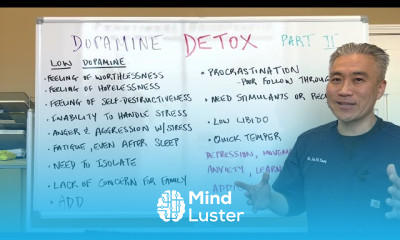 DOPAMINE DETOX PART II
LOW DOPAMINE
· FEELING OF WORTHLESSNESS
· FEELING OF HOPELESSNESS
· FEELING OF SELF-DESTRUCTIVENESS
· INABILITY TO HANDLE STRESS
· ANGER & AGGRESSION W/STRESS
· FATIGUE, EVEN AFTER SLEEP
· NEED TO ISOLATE
· LACK OF CONCERN FOR FAMILY
· ADD
· PROCRASTINATION
- POOR FOLLOW THROUGH
· NEED STIMULANTS OR
· LOW LIBIDO
· QUICK TEMPER
DEPRESSION,
ANXIETY,
Mind
Luster